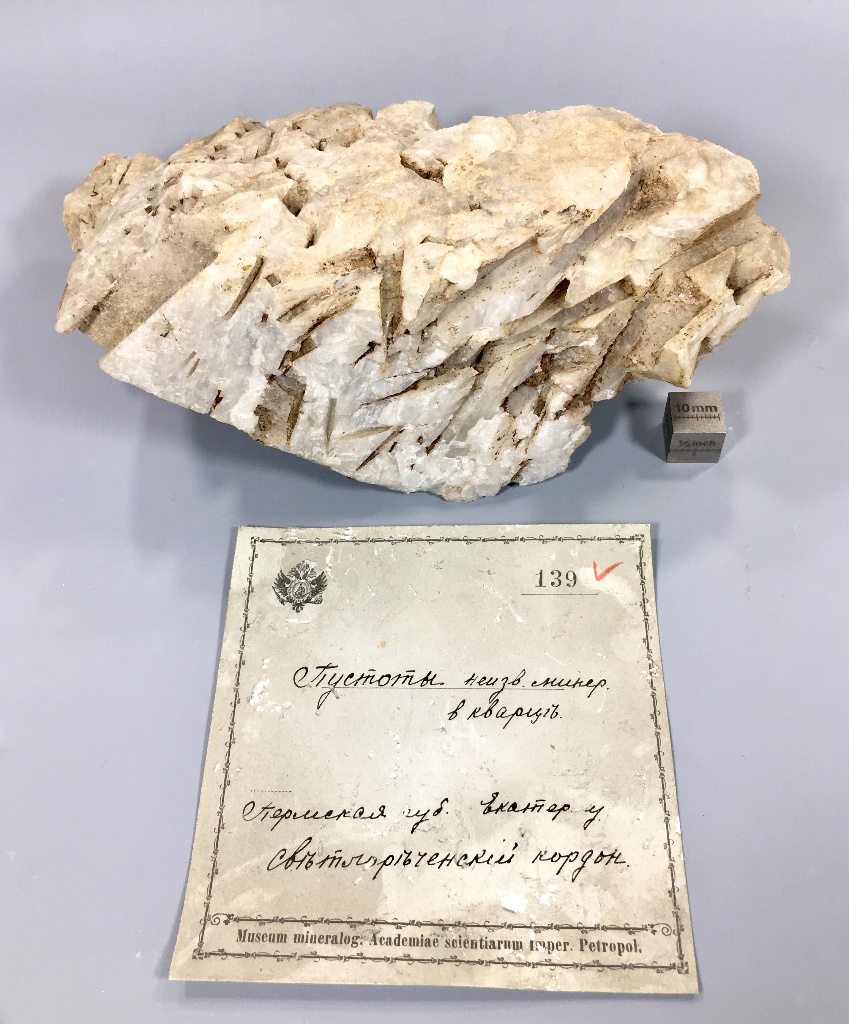 10mm
½ inch
139
Пустоты неизв. минер.
в кварцѣ.
Пермская губ. Екатер. у
Свѣтлорѣченскій кордон.
Museum mineralog. Academiae scientiarum Imper. Petropol.